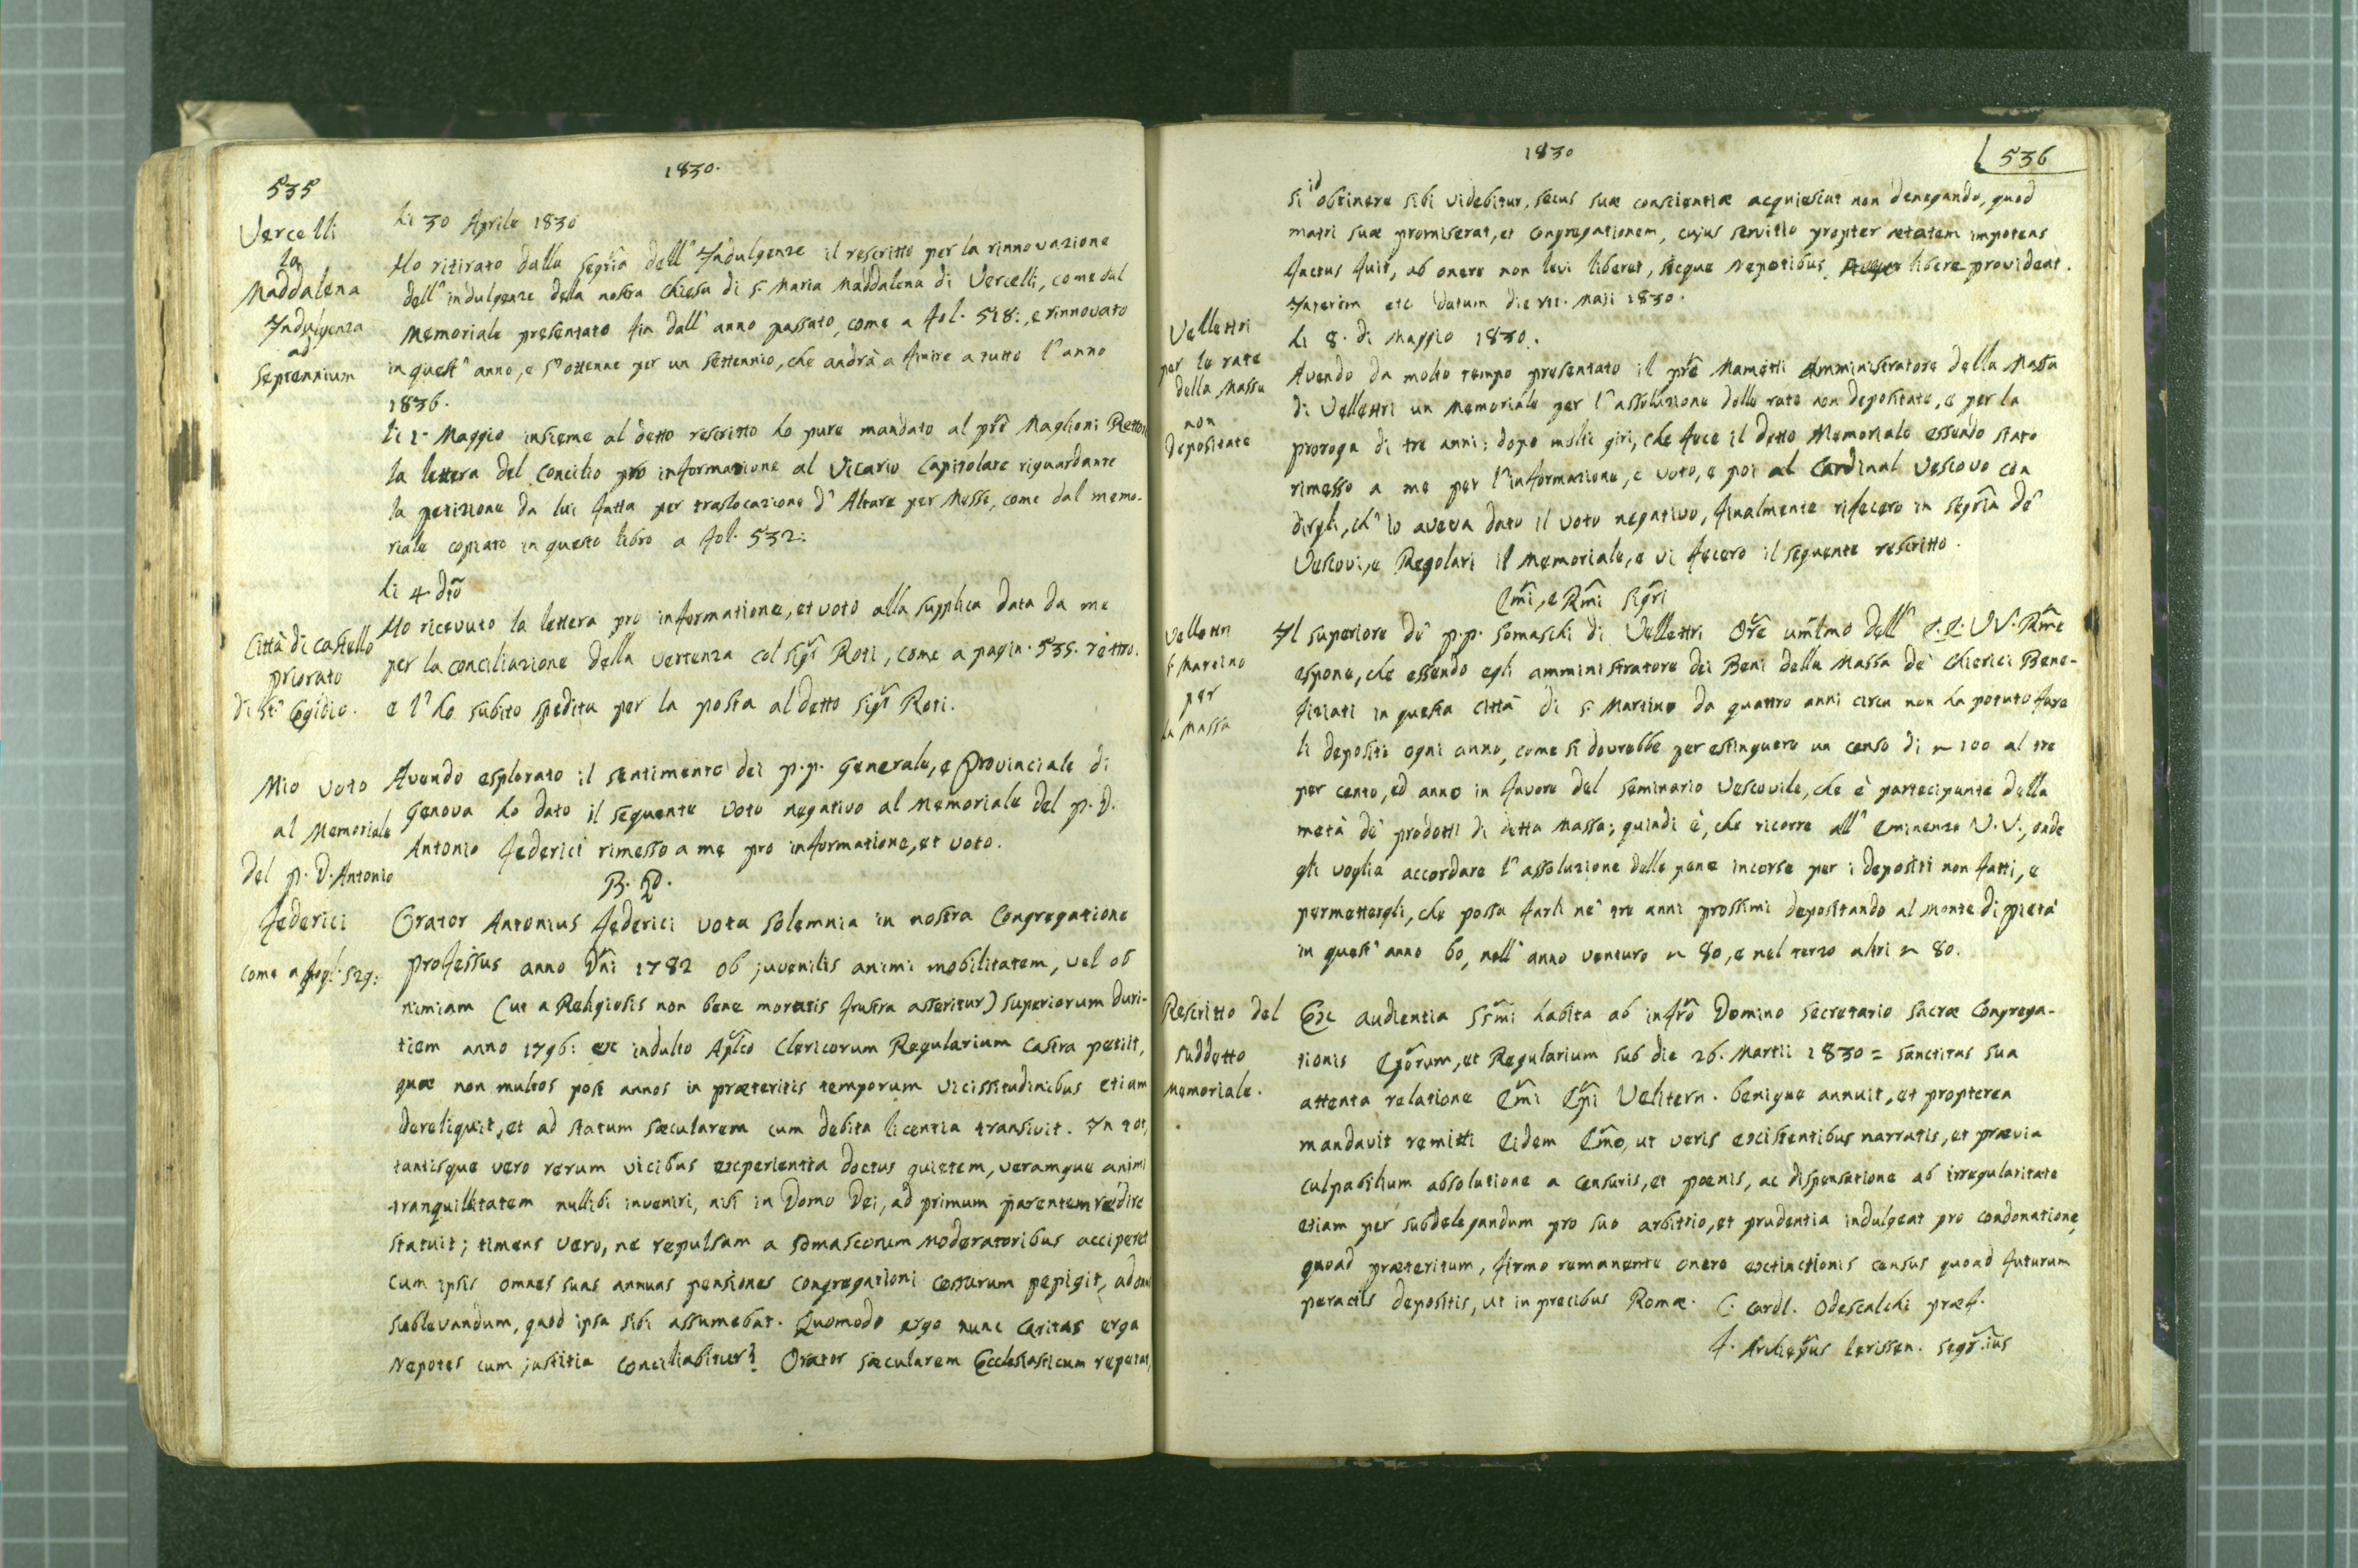 535
1830.
Vercelli
la
Maddalena
Indulgenza
ad
Septennium
li 30 Aprile 1830
Ho ritirato dalla Segria dell' Indulgenze il rescritto per la rinnovazione
dell' indulgenze della nostra Chiesa di S. Maria Maddalena di Vercelli, come dal
Memoriale presentato fin dall' anno passato, come a fol. 518:, e rinnovato
in quest' anno, e s' ottenne per un settennio, che andrà a finire a tutto l' anno
1836.
li 1° Maggio insieme al detto rescritto ho pure mandato al pre Maglioni Rettore
la lettera del Concilio pro informatione al Vicario Capitolare riguardante
la petizione da lui fatta per traslocazione d' Altare per Messe, come dal memo-
riale copiato in questo libro a fol. 532:
li 4. dto
Città di Castello
priorato
di St' Egidio.
Ho ricevuto la lettera pro informatione, et voto alla supplica data da me
per la conciliazione della vertenza col Sigr Roti, come a pagin. 535. retro.
e l' ho subito spedita per la posta al detto Sigr Roti.
Mio voto
al Memoriale
del p. D. Antonio
Federici
come a fogl. 529:
Avendo esplorato il sentimento dei p.p. Generale, e Provinciale di
Genova ho dato il seguente voto negativo al Memoriale del p. D.
Antonio Federici rimesso a me pro informatione, et voto.
B. P.
Orator Antonius Federici vota solemnia in nostra Congregatione
professus anno Dni 1782 ob juvenilis animi mobilitatem, vel ob
nimiam (ut a Religiosis non bene moratis frustra asseritur) superiorum duri-
tiem anno 1796: ex indulto Aplco Clericorum Regularium castra petiit,
quæ non multos post annos in præteritis temporum vicissitudinibus etiam
dereliquit, et ad statum sæcularem cum debita licentia transivit. In tot,
tantisque vero rerum vicibus experientia doctus quietem, veramque animi
tranquillitatem nullibi inveniri, nisi in Domo Dei, ad primum parentem redire
statuit; timens vero, ne repulsam a Somascorum Moderatoribus acciperet
cum ipsis omnes suas annuas pensiones Congregationi cessurum pepigit, ad onus
sublevandum, quod ipsa sibi assumebat. Quomodo ergo nunc caritas erga
Nepotes cum justitia conciliabitur? Orator sæcularem Ecclesiasticum repetat,
1830
536
si id obtinere sibi videbitur, secus suæ conscientiæ acquiescat non denegando, quod
matri suæ promiserat, et Congregationem, cujus servitio propter ætatem impotens
factus fuit, ab onere non levi liberet, sicque Nepotibus libere provideat.
Interim etc datum die VII. Maji 1830.
Velletri
per le rate
della Massa
non
depositate
li 8. di Maggio 1830.
Avendo da molto tempo presentato il pre Mametti Amministratore della Massa
di Velletri un Memoriale per l' assoluzione delle rate non depositate, e per la
proroga di tre anni: dopo molti giri, che fece il detto Memoriale essendo stato
rimesso a me per l' informazione, e voto, e poi al Cardinal Vescovo con
dirgli, ch' io aveva dato il voto negativo, finalmente rifecero in Segria de'
Vescovi, e Regolari il Memoriale, e vi fecero il seguente rescritto.
Emi, e Rmi Sigri
Velletri
S. Martino
per
la Massa
Il superiore de' p.p. Somaschi di Velletri Ore umlmo dell' E.E. VV. Rme
espone, che essendo egli amministratore dei Beni della Massa de' Chierici Bene-
fiziati in questa Città di S. Martino da quattro anni circa non ha potuto fare
li depositi ogni anno, come si dovrebbe per estinguere un censo di ~ 100 al tre
per cento, ed anno in favore del Seminario Vescovile, che è partecipante della
metà de' prodotti di detta Massa; quindi è, che ricorre all' Eminenze V.V., onde
gli voglia accordare l' assoluzione delle pene incorse per i depositi non fatti, e
permettergli, che possa farli ne' tre anni prossimi depositando al Monte di pietà
in quest' anno 60, nell' anno venturo ~ 80, e nel terzo altri ~ 80.
Rescritto del
suddetto
Memoriale.
Ex audientia SSmi habita ab infro Domino Secretario Sacræ Congrega-
tionis Eporum, et Regularium sub die 26. Martii 1830 = Sanctitas Sua
attenta relatione Emi Epi Velitern. benigne annuit, et propterea
mandavit remitti Eidem Emo, ut veris existentibus narratis, et prævia
culpabilium absolutione a censuris, et pœnis, ac dispensatione ab irregularitate
etiam per subdelegandum pro suo arbitrio, et prudentia indulgeat pro condonatione
quoad præteritum, firmo remanente onere extinctionis census quoad futurum
peractis depositis, ut in precibus Romæ. C. Cardl. Odescalchi præf.
f. Archiepus Serissen. Segr.ius